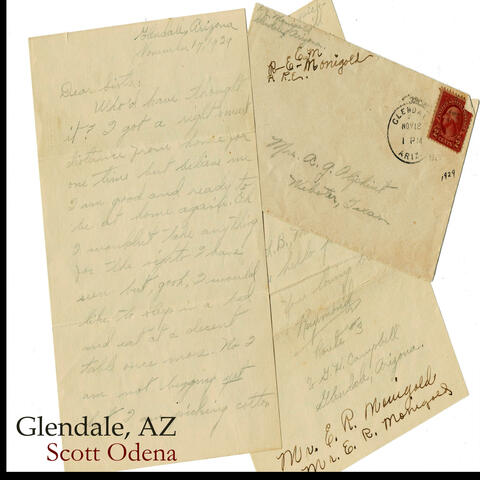 Glendale, Arizona
November 17, 1929
Dear Sister:
Who'd have thought
it? I got a right smart
distance from home for
one time but believe me
I am good and ready to
be at home again. Oh
I wouldn't take anything
for the sights I have
seen but, gosh, I would
like to sleep in a bed
and eat at a decent
table once more. No I
am not begging yet
but I am picking cotton
Arizona.
E M
R-E-Monigold
GLENDALE
NOV 18
1 PM
ARIZ
2
1929
Mrs. A. G.
Webster, Texas
hello
Raymond
Route #3
% G. H. Campbell
Glendale, Arizona.
Mr. E. R. Monigold
Mr. E. R. Monigold
Glendale, AZ
Scott Odena